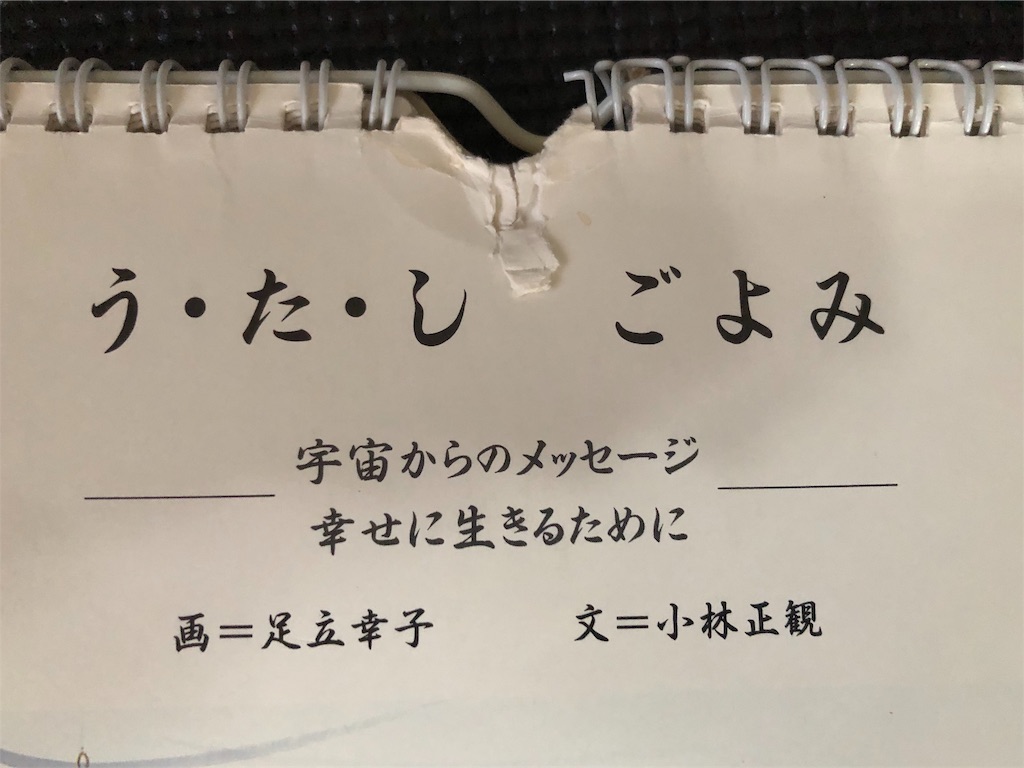 う・た・し ごよみ
宇宙からのメッセージ
幸せに生きるために
画＝足立幸子 文＝小林正観